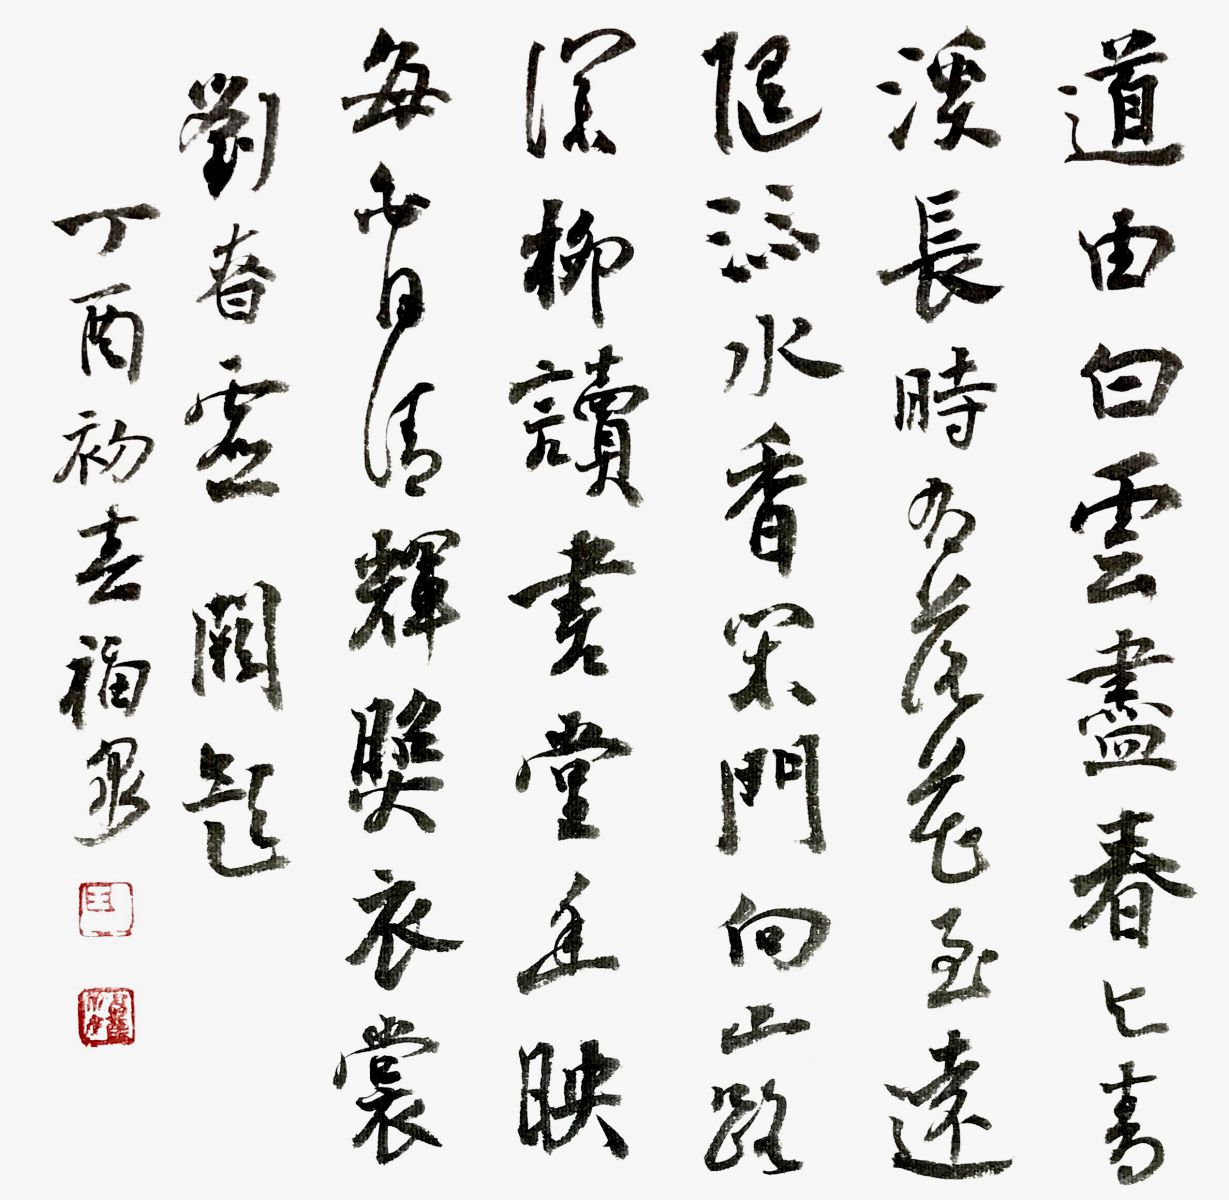 道由白雲盡春与青
溪長時有落花至遠
隨流水香閑門向山路
深柳讀書堂幽映
每白日清輝照衣裳
劉眘虛 闕題
丁酉初春福泉